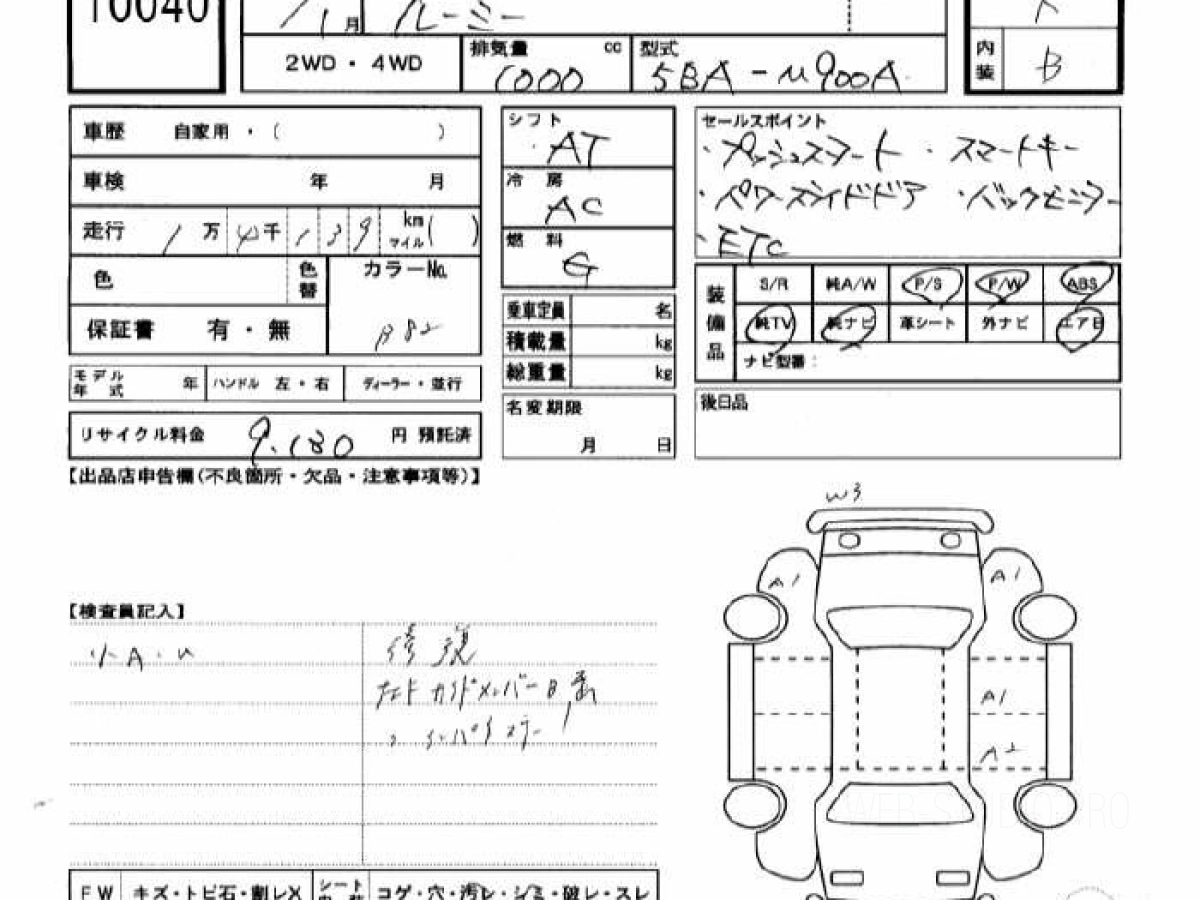 10040
月 ルーミー
2WD・4WD 排気量 cc 1000 型式 5BA-M900A
内装 B
車歴 自家用・( )
車検 年 月
走行 1万4千139km マイル( )
色 色替 カラーNo. B82
保証書 有・無
モデル年式 年 ハンドル 左・右 ディーラー・並行
リサイクル料金 9.130 円 預託済
シフト AT
冷房 AC
燃料 G
乗車定員 名
積載量 kg
総重量 kg
名変期限 月 日
セールスポイント
・プッシュスタート ・スマートキー
・パワースライドドア ・バックモニター
・ETC
装備品 S/R 純A/W P/S P/W ABS
純TV 純ナビ 革シート 外ナビ エアB
ナビ型番:
後日品
【出品店申告欄(不良箇所・欠品・注意事項等)】
【検査員記入】
小A・U
修復
メンバー
W3
A1 A1
A1
A2
WEB-S
FW キズ・トビ石・割レX シート コゲ・穴・汚レ・シミ・破レ・スレ